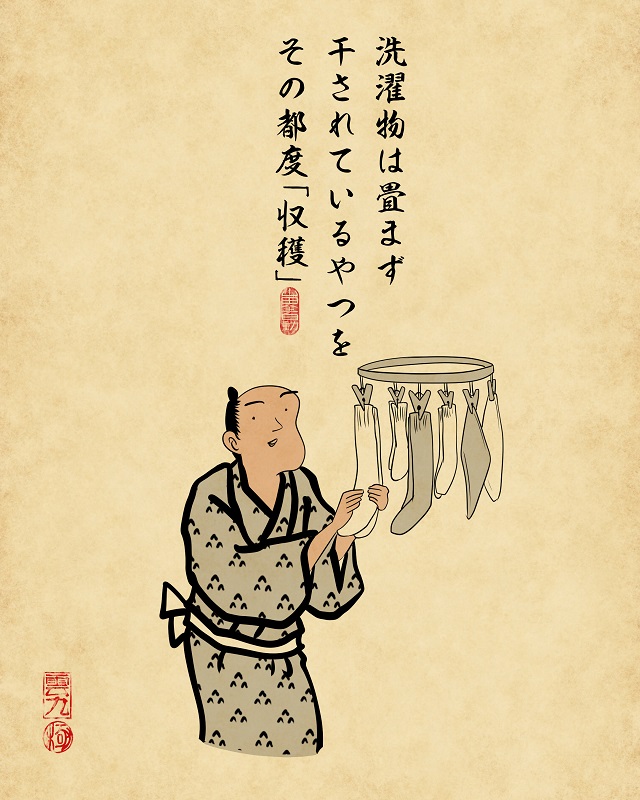 洗濯物は畳まず
干されているやつを
その都度「収穫」